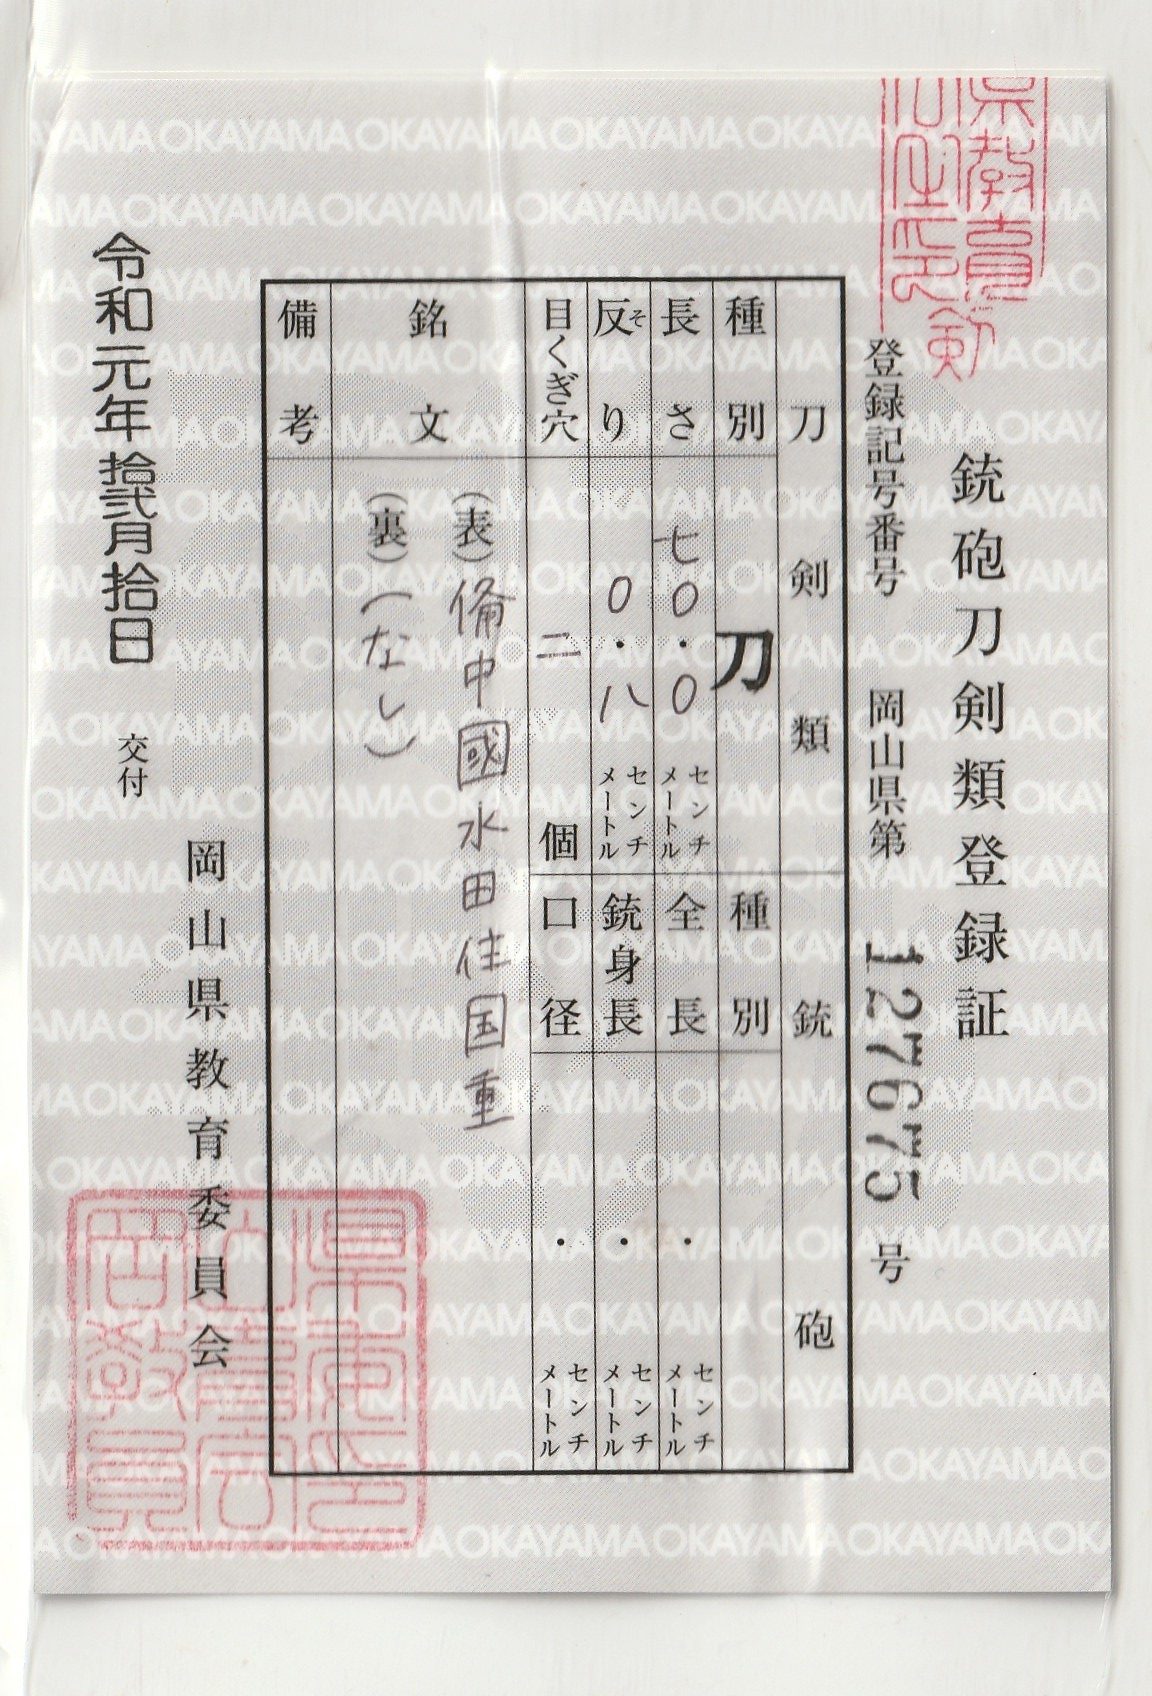 銃砲刀剣類登録証
登録記号番号 岡山県第 127675 号
刀剣類
種別 刀
長さ 七〇・〇 センチメートル
反り 〇・八 センチメートル
そ
目くぎ穴 二 個
銘文 (表) 備中國水田住国重
(裏) (なし)
備考
銃砲
種別
全長 ・ センチメートル
銃身長 ・ センチメートル
口径 ・ センチメートル
令和元年拾弐月拾日 交付
岡山県教育委員会
OKAYAMA